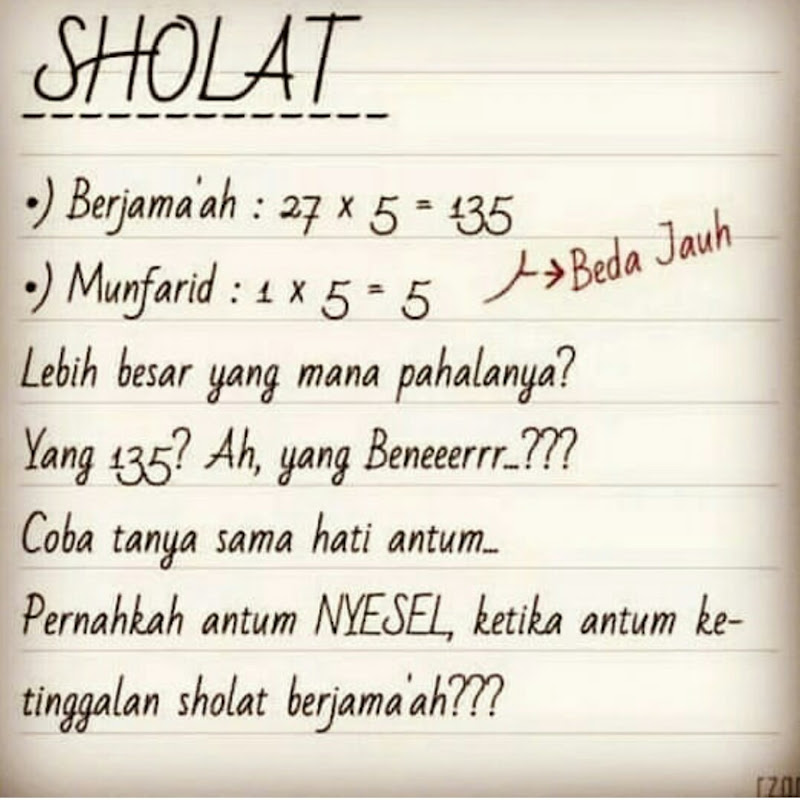 SHOLAT
•) Berjama'ah : 27 x 5 = 135
•) Munfarid : 1 x 5 = 5
→ Beda Jauh
Lebih besar yang mana pahalanya?
Yang 135? Ah, yang Beneeerrr...???
Coba tanya sama hati antum...
Pernahkah antum NYESEL, ketika antum ke-
tinggalan sholat berjama'ah???